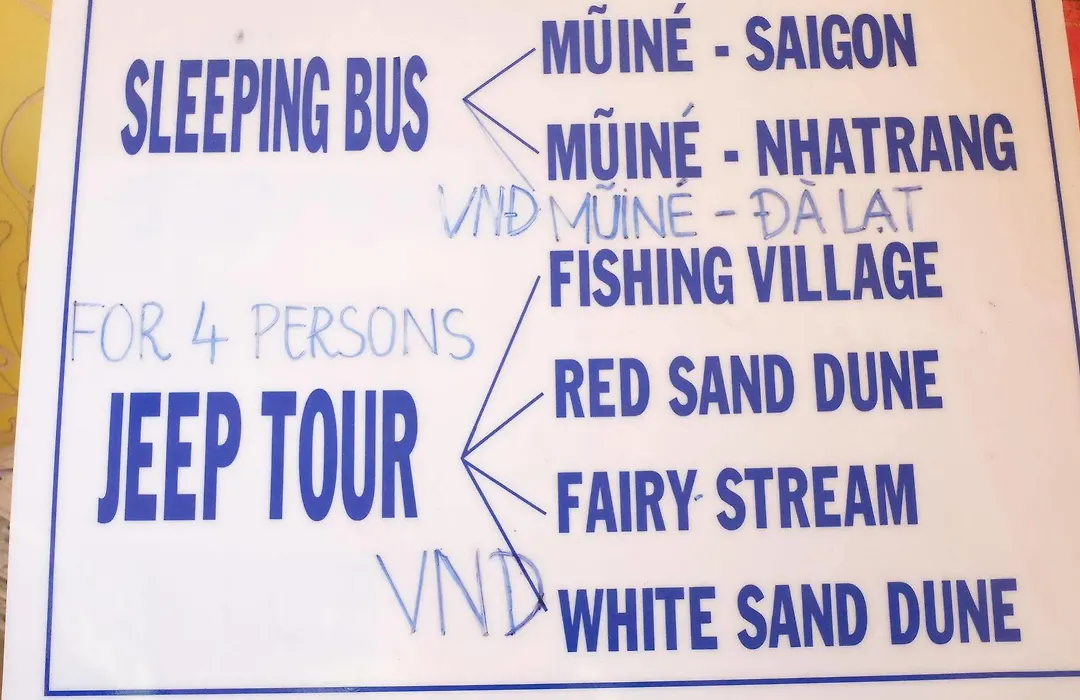 SLEEPING BUS
MŨINÉ - SAIGON
MŨINÉ - NHATRANG
VNĐ MŨINÉ - ĐÀ LẠT
FOR 4 PERSONS
JEEP TOUR
FISHING VILLAGE
RED SAND DUNE
FAIRY STREAM
VND WHITE SAND DUNE